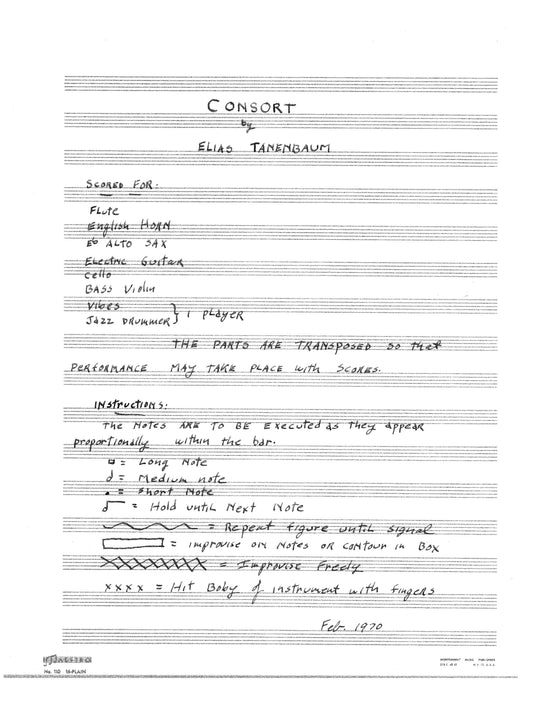 CONSORT
by
ELIAS TANENBAUM
SCORED FOR:
Flute
English HORN
Eb ALTO SAX
Electric Guitar
Cello
BASS Violin
Vibes
JAZZ DRUMMER } 1 PLAYER
THE PARTS ARE TRANSPOSED SO that
PERFORMANCE MAY TAKE PLACE with SCORES.
INstructions:
the Notes ARE TO BE Executed as they appear
proportionally within the bar.
= Long Note
= Medium note
= Short Note
= Hold until Next Note
= Repeat figure until signal
= improvise on Notes or contour in Box
= Improvise Freely
xxxx = Hit Boby of instrument with fingers
Feb. 1970
No. 110 16-PLAIN